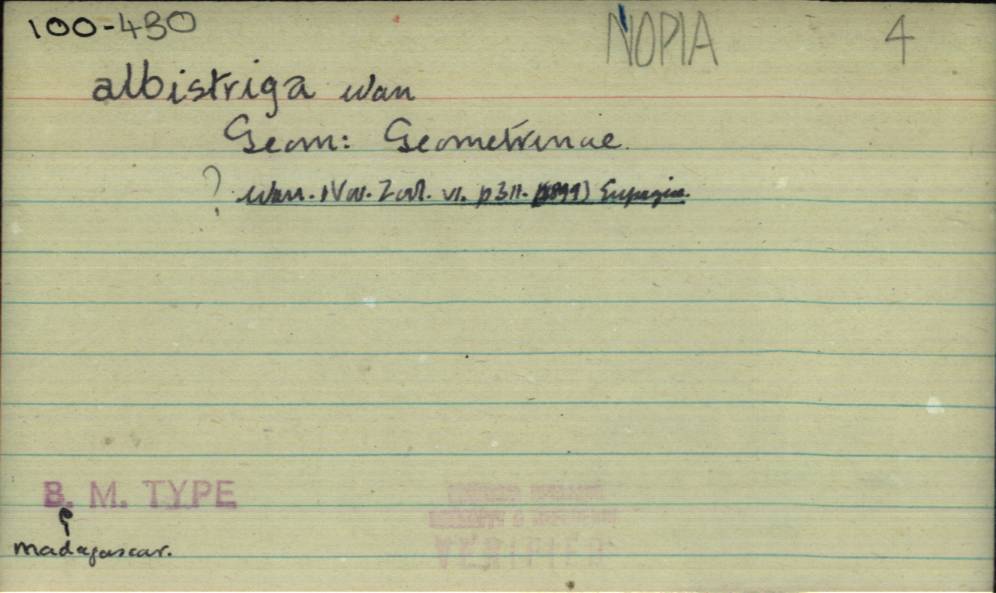 100-430
NOPIA 4
albistriga Warr
Geom: Geometrinae.
? Warr. Nov. Zool. VI. p311. (1899)
B. M. TYPE
♀
madagascar.
VERIFIED